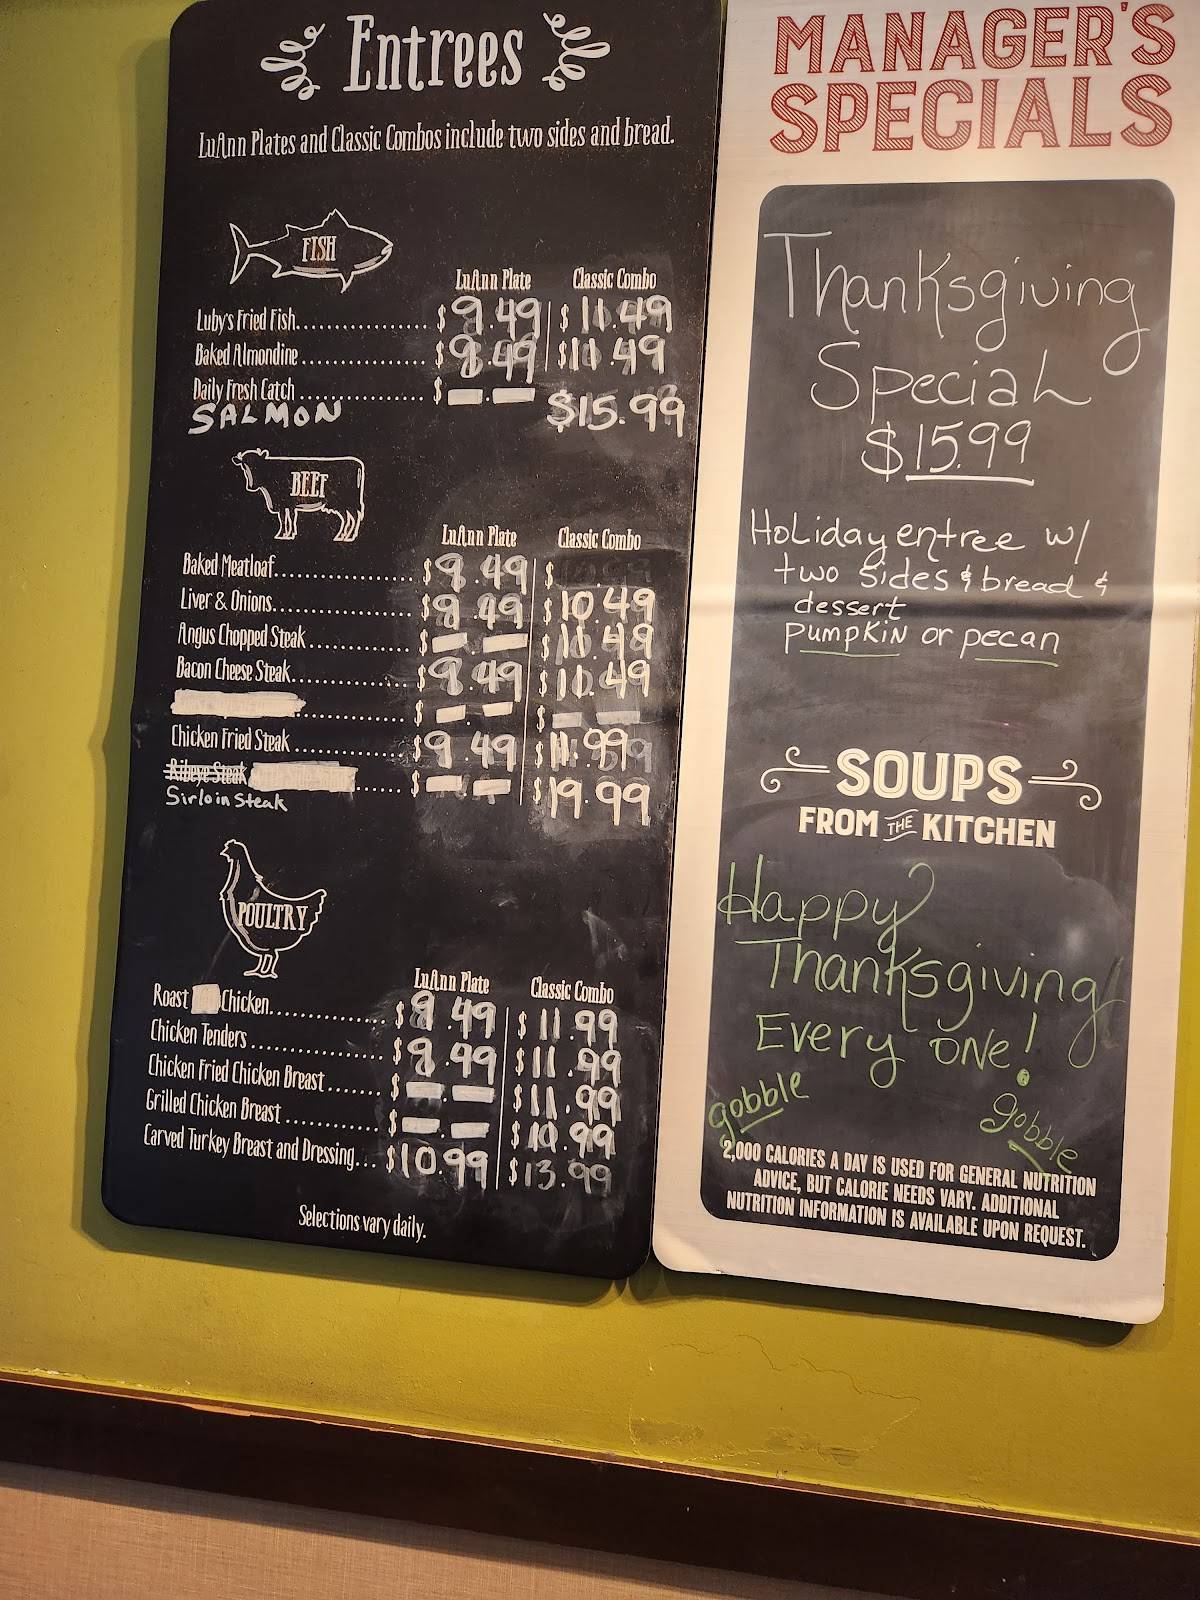 Entrees
LuAnn Plates and Classic Combos include two sides and bread.
FISH
LuAnn Plate Classic Combo
Luby's Fried Fish.................. $9.49 $11.49
Baked Almondine .................. $9.49 $11.49
Daily Fresh Catch .................. $ . $15.99
SALMON
BEEF
LuAnn Plate Classic Combo
Baked Meatloaf.................. $9.49 $ .
Liver & Onions.................. $9.49 $10.49
Angus Chopped Steak .................. $ . $10.49
Bacon Cheese Steak.................. $9.49 $10.49
.................. $ . $ .
Chicken Fried Steak .................. $9.49 $11.99
Ribeye Steak ...... $ . $19.99
Sirloin Steak
POULTRY
LuAnn Plate Classic Combo
Roast Chicken.................. $9.49 $11.99
Chicken Tenders .................. $9.99 $11.99
Chicken Fried Chicken Breast ....... $ . $11.99
Grilled Chicken Breast ............ $ . $10.99
Carved Turkey Breast and Dressing... $10.99 $13.99
Selections vary daily.
MANAGER'S
SPECIALS
Thanksgiving
Special
$15.99
Holiday entree w/
two sides & bread &
dessert
pumpkin or pecan
SOUPS
FROM THE KITCHEN
Happy
Thanksgiving
Every one!
gobble
gobble
2,000 CALORIES A DAY IS USED FOR GENERAL NUTRITION
ADVICE, BUT CALORIE NEEDS VARY. ADDITIONAL
NUTRITION INFORMATION IS AVAILABLE UPON REQUEST.